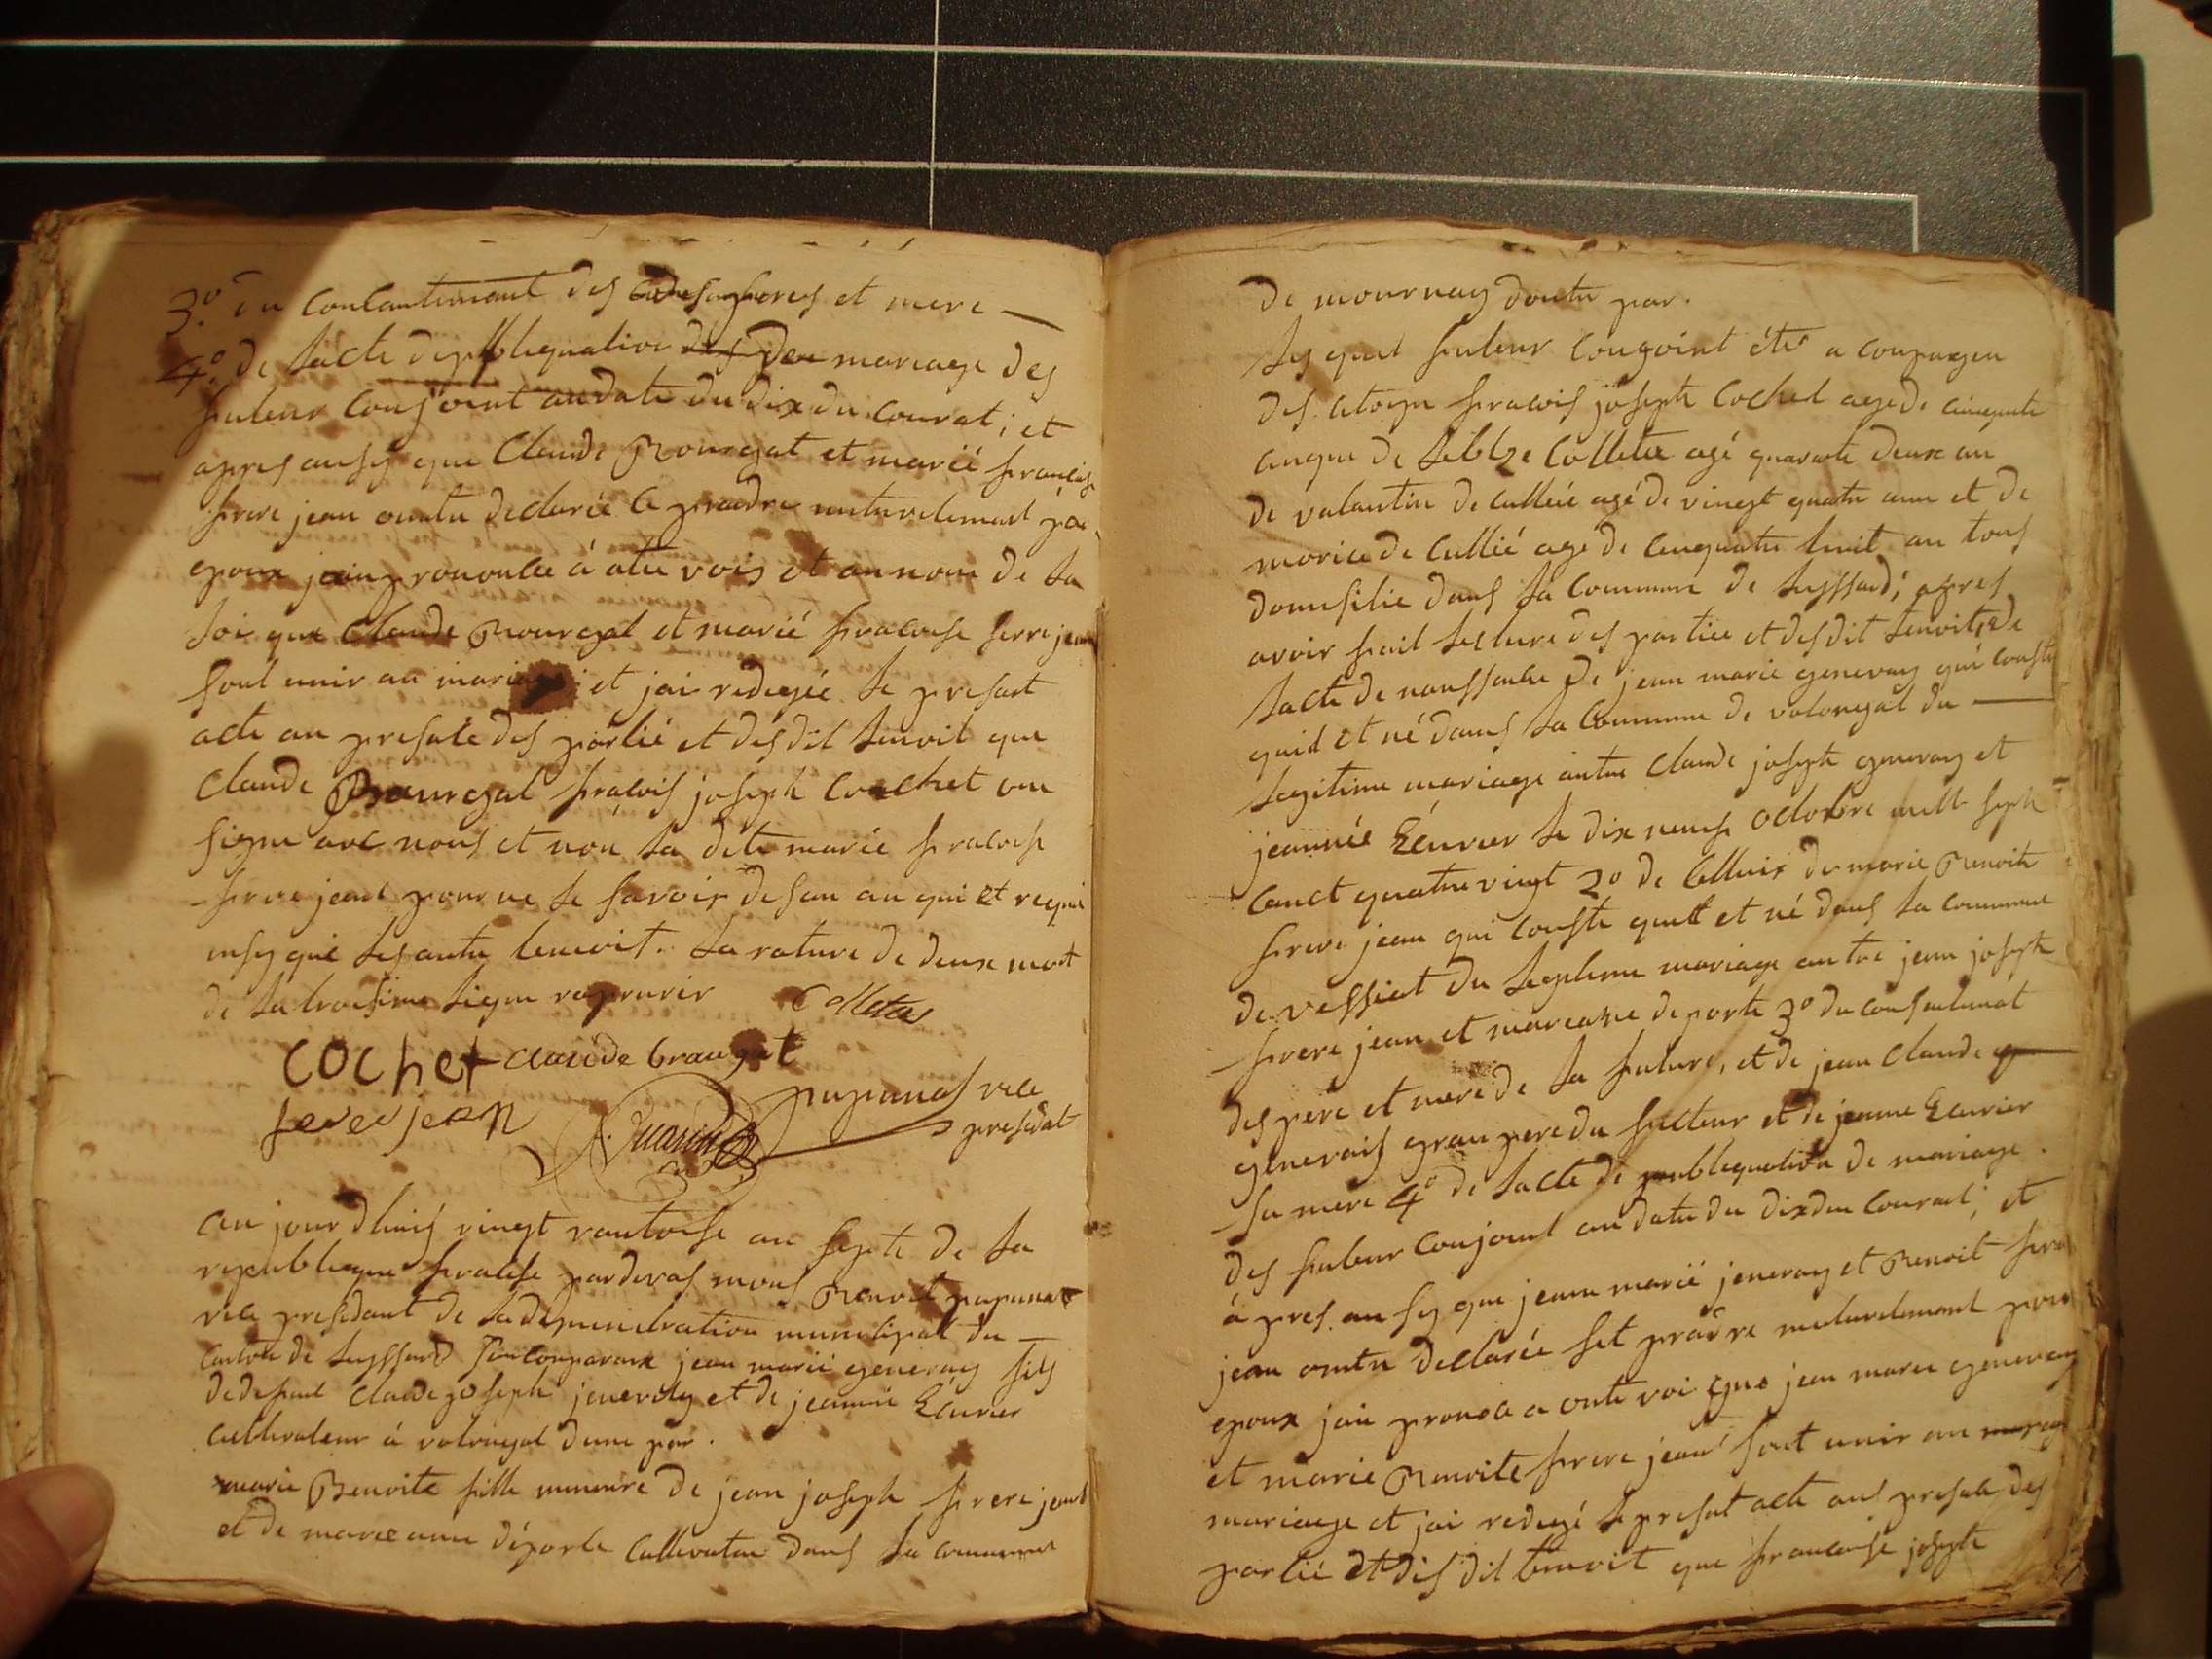 3.° du contantemant des peres et mere —
4.° de lacte depublequation des deu mariage des
futeur conjoint audate du dix du courat; et
apres ausy que Claude Bouregat et marié francise
frere jean outtu declarée ce prandre mutuelemant pour
epoux jai prononcée à ote vois et aunom de la
loi que Claude Bouregat et marié fracoise frere jean
sont unir au mariage et jai redigée le presant
acte au presate des partié et desdit temoit que
Claude Bouregat fraçois joseph Cochet one
signe avc nous et non la dite marié fracoise
frere jean pour ne le savoir de san au qui et requi
insy que les autre temoit. La rature de deux mot
de la troisime ligne
Colletaz
Cochet claude braugat
ferer jean pupunat vice
presidat
au jour dhuis vingt vantose an septe de la
republique fracise pardevas nous Benoit pupunat
vice presidant de ladmministration municipal du —
canton de leyssard conparaux jean marié genevay fils
de defunt Claude joseph jenevay et de jeannie Ecurier
cultivateur à volongat dune par.
marie Benoite fille mineure de jean joseph frere jean
et de marie anne déporte cultivateur dans la commune
de mournay doutre par.
les quel futeur congoint été a conpagen
des citoyn fracois joseph Cochet age de cinquante
cinque de Colletta agé quarante deux an
de valantin de cullié agé de vinegt quatre ann et de
morice de Cullié agé de cinquante huit an tous
domisilié dans la commune de leyssard; apres
avoir fait lecture des partiee et desdit temoit, de
lacte de nanssance de jean marie genevay qui conste
quid et né dans la Commune de volongat du —
legitime mariage antre Claude joseph genevay et
jeannée Ecurier le dix neuf octobre mill seph
canct quatre vingt 2° de celluis de marie Benoite
frere jean qui conste quell et né dans la commune
de vessiat du legitime mariage antre jean joseph
frere jean et mareanne deporte 3° du consentemat
des pere et mere de la future, et de jean Claude g—
genevais gran pere du futteur et de jeanne Ecurier
sa mere 4° de lacte de publequation de mariage.
des futeur conjoint au date du dix du courant; et
à pres ausy que jean marié jenevay et Benoit frere
jean outtu declarée set prandre mutuelemant pour
epoux jai prononce a oute voi que jean marie genevay
et marie Benoite frere jean sont unir au
mariage et jai redigé le presat acte aus presate des
partié et dis dit temoit que francoise joseph